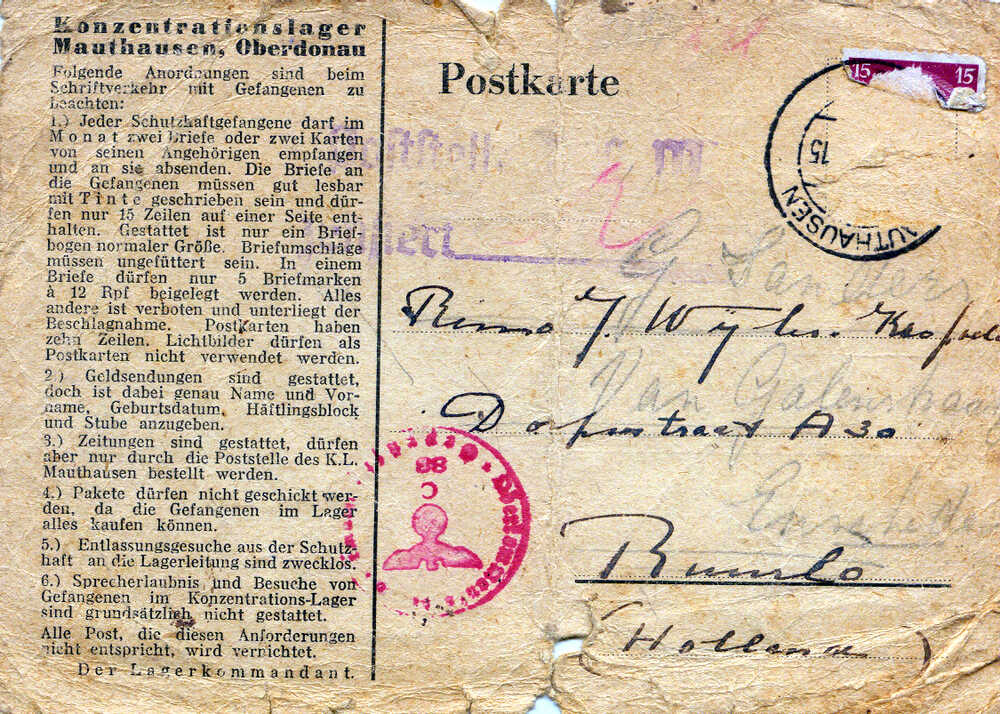 Konzentrationslager
Mauthausen, Oberdonau
Folgende Anordnungen sind beim
Schriftverkehr mit Gefangenen zu
beachten:
1.) Jeder Schutzhaftgefangene darf im
Monat zwei Briefe oder zwei Karten
von seinen Angehörigen empfangen
und an sie absenden. Die Briefe an
die Gefangenen müssen gut lesbar
mit Tinte geschrieben sein und dür-
fen nur 15 Zeilen auf einer Seite ent-
halten. Gestattet ist nur ein Brief-
bogen normaler Größe. Briefumschläge
müssen ungefüttert sein. In einem
Briefe dürfen nur 5 Briefmarken
à 12 Rpf beigelegt werden. Alles
andere ist verboten und unterliegt der
Beschlagnahme. Postkarten haben
zehn Zeilen. Lichtbilder dürfen als
Postkarten nicht verwendet werden.
2.) Geldsendungen sind gestattet,
doch ist dabei genau Name und Vor-
name, Geburtsdatum, Häftlingsblock
und Stube anzugeben.
3.) Zeitungen sind gestattet, dürfen
aber nur durch die Poststelle des K.L.
Mauthausen bestellt werden.
4.) Pakete dürfen nicht geschickt wer-
den, da die Gefangenen im Lager
alles kaufen können.
5.) Entlassungsgesuche aus der Schutz-
haft an die Lagerleitung sind zwecklos.
6.) Sprecherlaubnis und Besuche von
Gefangenen im Konzentrations-Lager
sind grundsätzlich nicht gestattet.
Alle Post, die diesen Anforderungen
nicht entspricht, wird vernichtet.
Der Lagerkommandant.
Postkarte
15 15
15
AUTHAUSEN
J.
Dorpsstraat A30
(Holland)
C